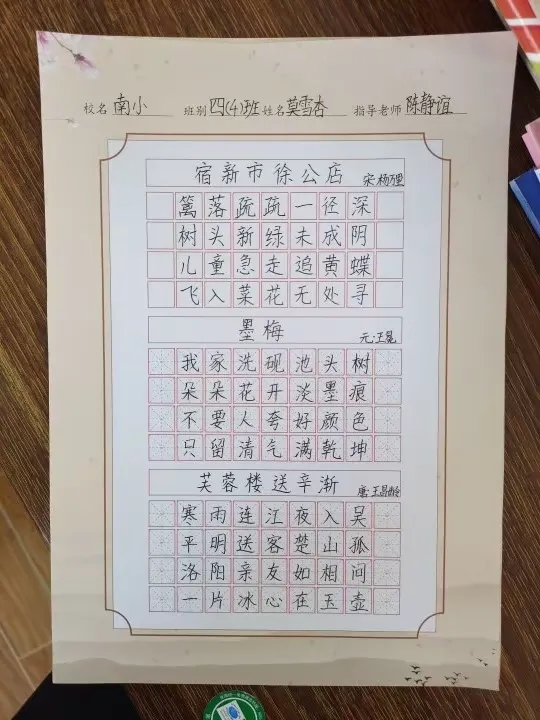 校名 南小 班别 四(4)班 姓名 莫雪杏 指导老师 陈静谊
宿新市徐公店 宋·杨万里
篱落疏疏一径深
树头新绿未成阴
儿童急走追黄蝶
飞入菜花无处寻
墨梅 元:王冕
我家洗砚池头树
朵朵花开淡墨痕
不要人夸好颜色
只留清气满乾坤
芙蓉楼送辛渐 唐:王昌龄
寒雨连江夜入吴
平明送客楚山孤
洛阳亲友如相问
一片冰心在玉壶